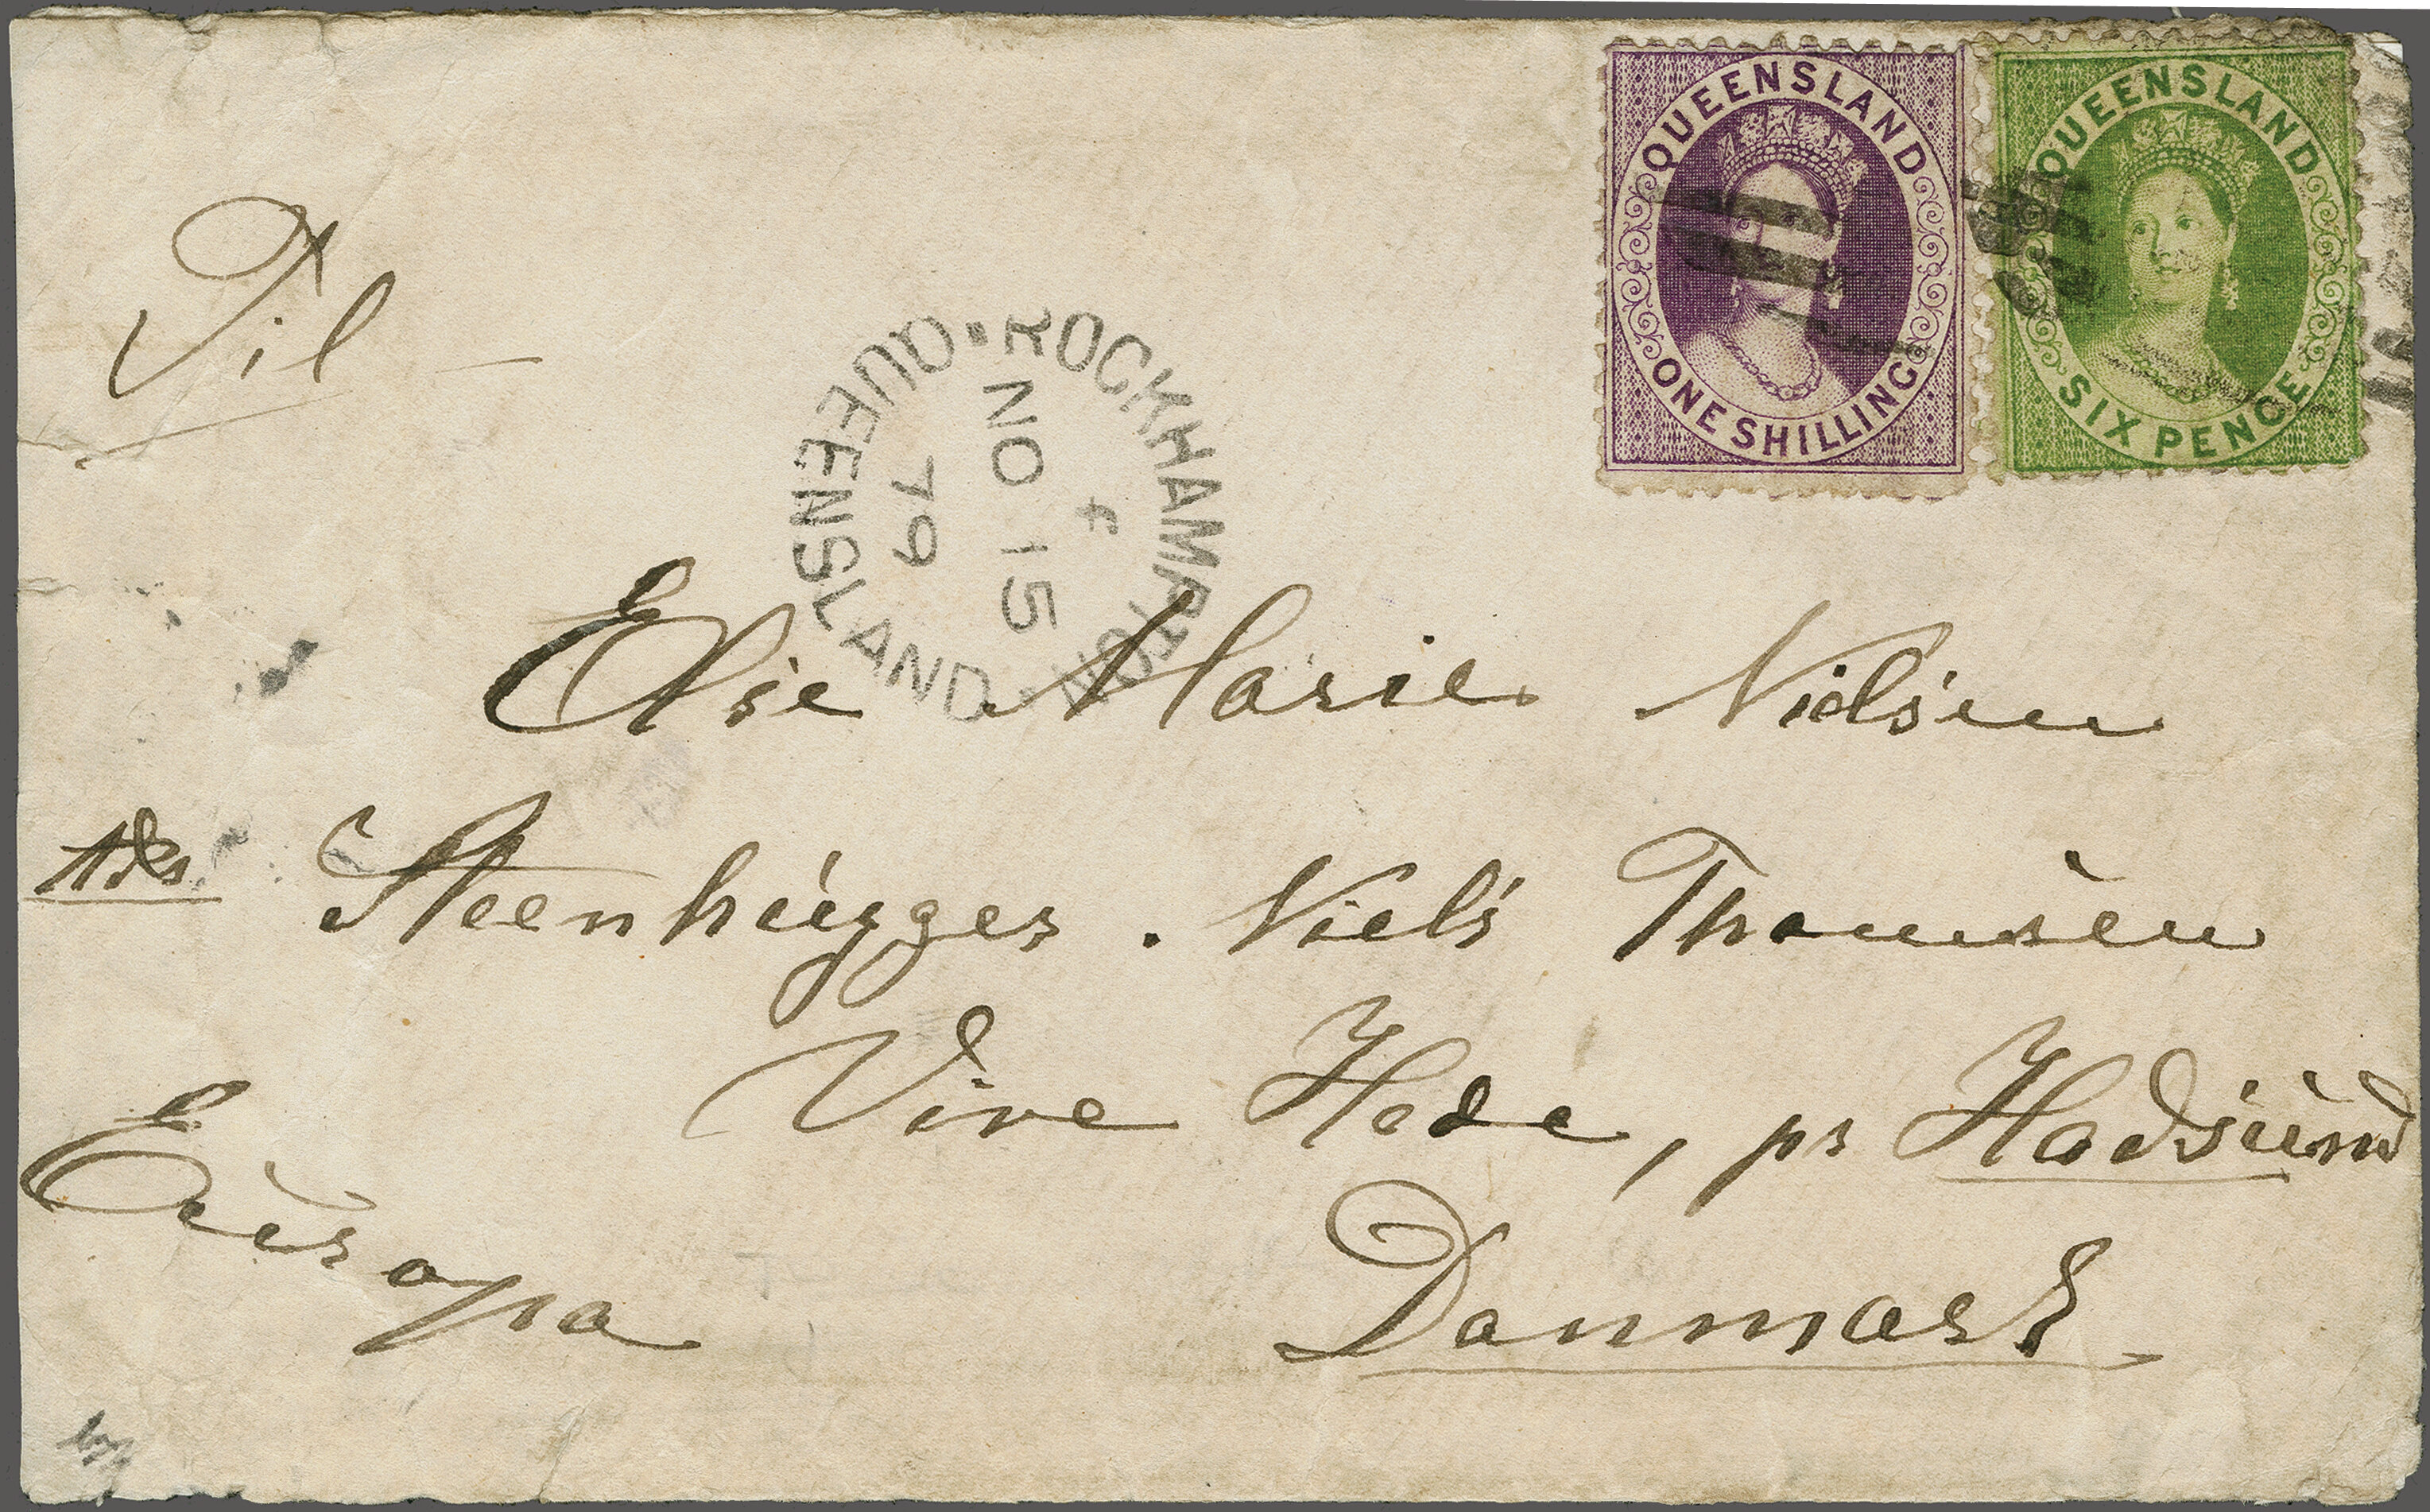 QUEENSLAND
ONE SHILLING
QUEENSLAND
SIX PENCE
Til
ROCKHAMPTON
F
NO 15
79
QUEENSLAND
Else Marie Nielsen
Adr. Steenhugger. Niels Thomsen
Vive Hede, pr Hadsund
Europa
Danmark